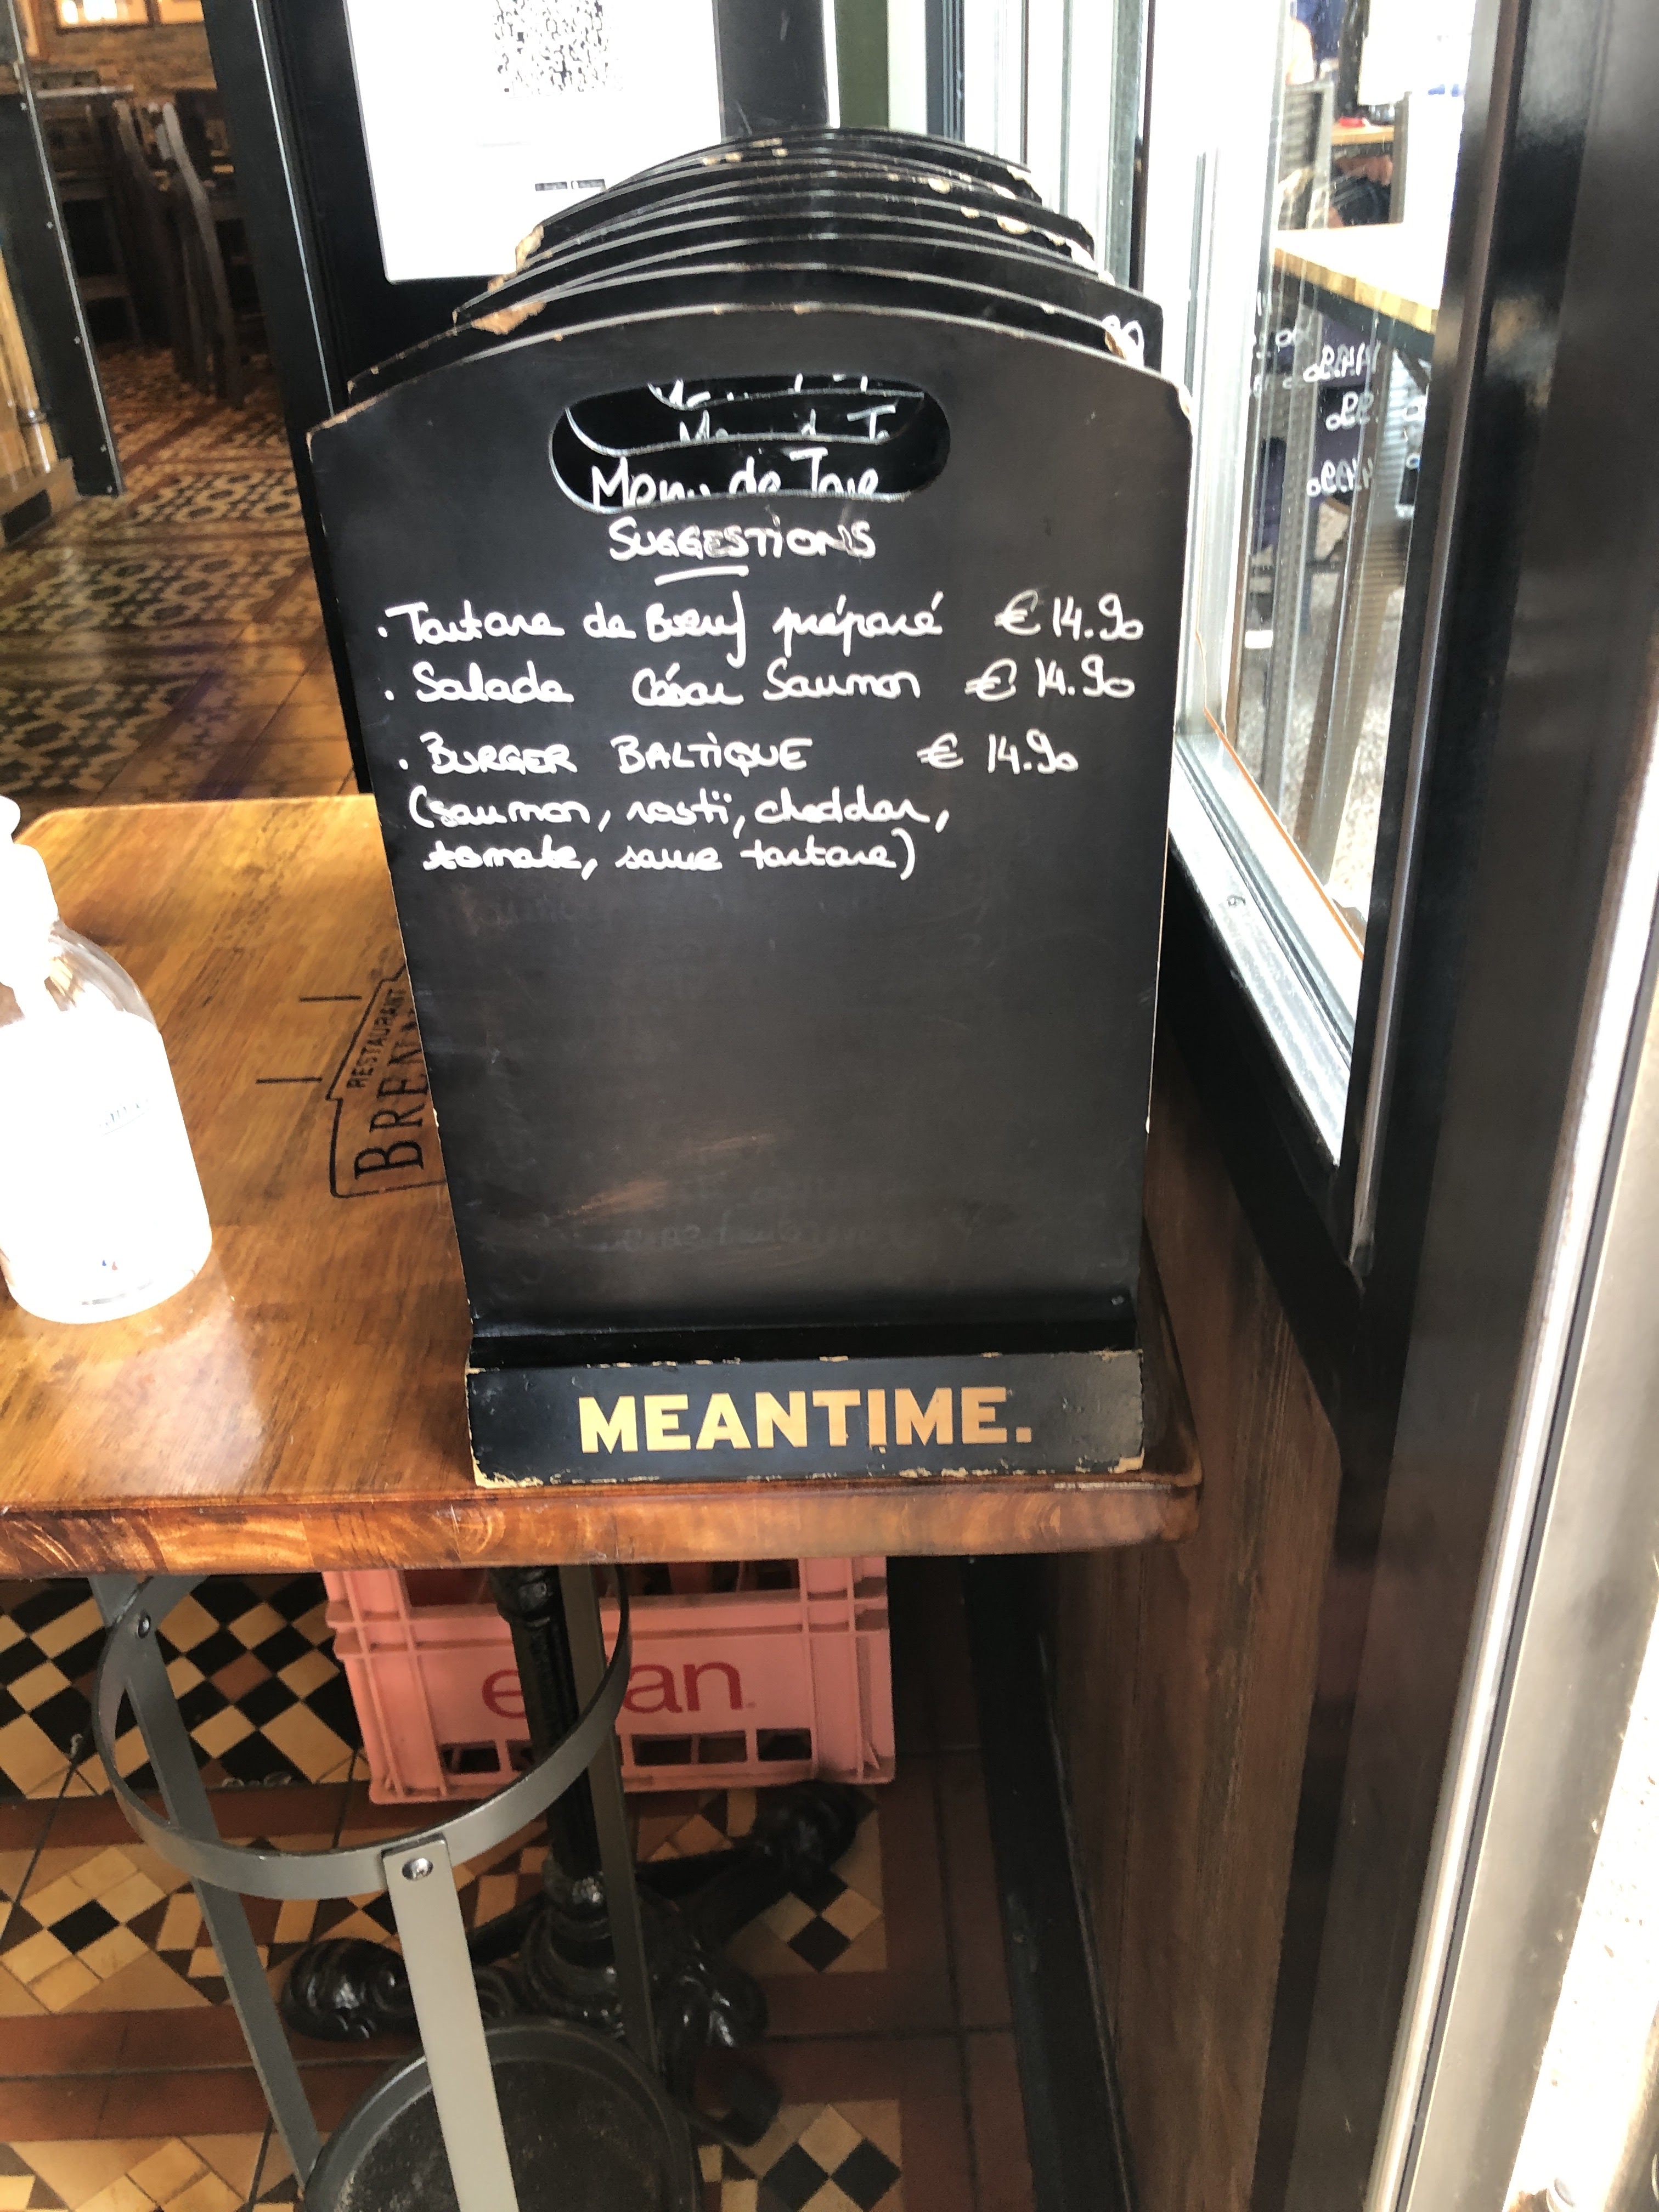 Menu de
SUGGESTIONS
. Tartare de Boeuf préparé € 14.90
. Salade César Saumon € 14.90
. BURGER BALTIQUE € 14.90
(saumon, rosti, cheddar,
tomate, sauce tartare)
RESTAURANT
MEANTIME.